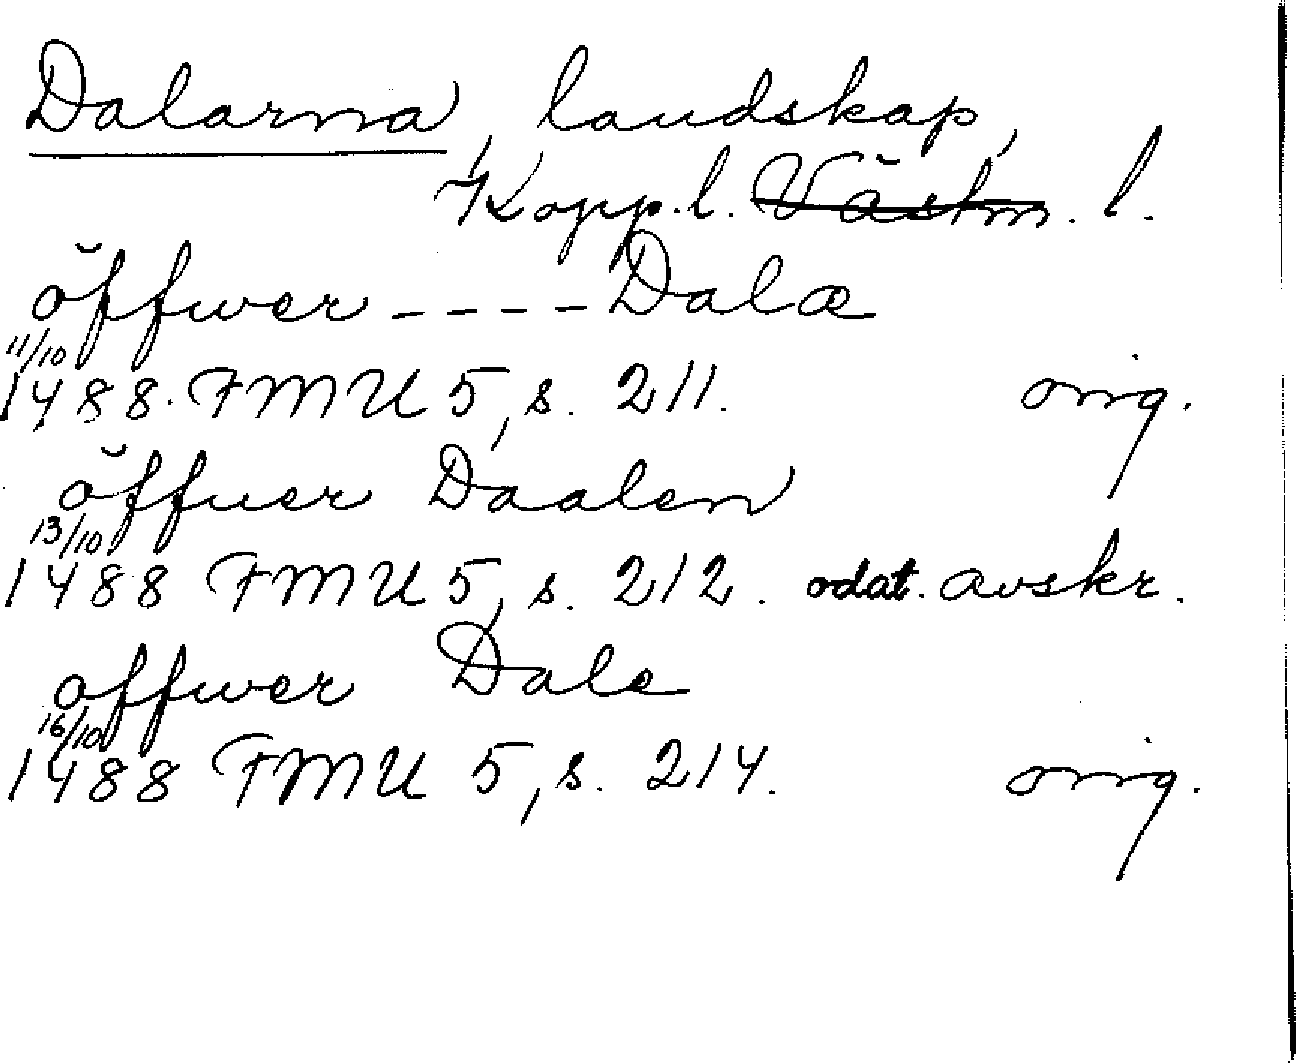 Dalarna, landskap,
Kopp.l. Västm. l.
öffwer ---- Dalæ
11/10
1488. FMU 5, s. 211. orig.
öffuer Daalen
13/10
1488 FMU 5, s. 212. odat. avskr.
offwer Dale
16/10
1488 FMU 5, s. 214. orig.